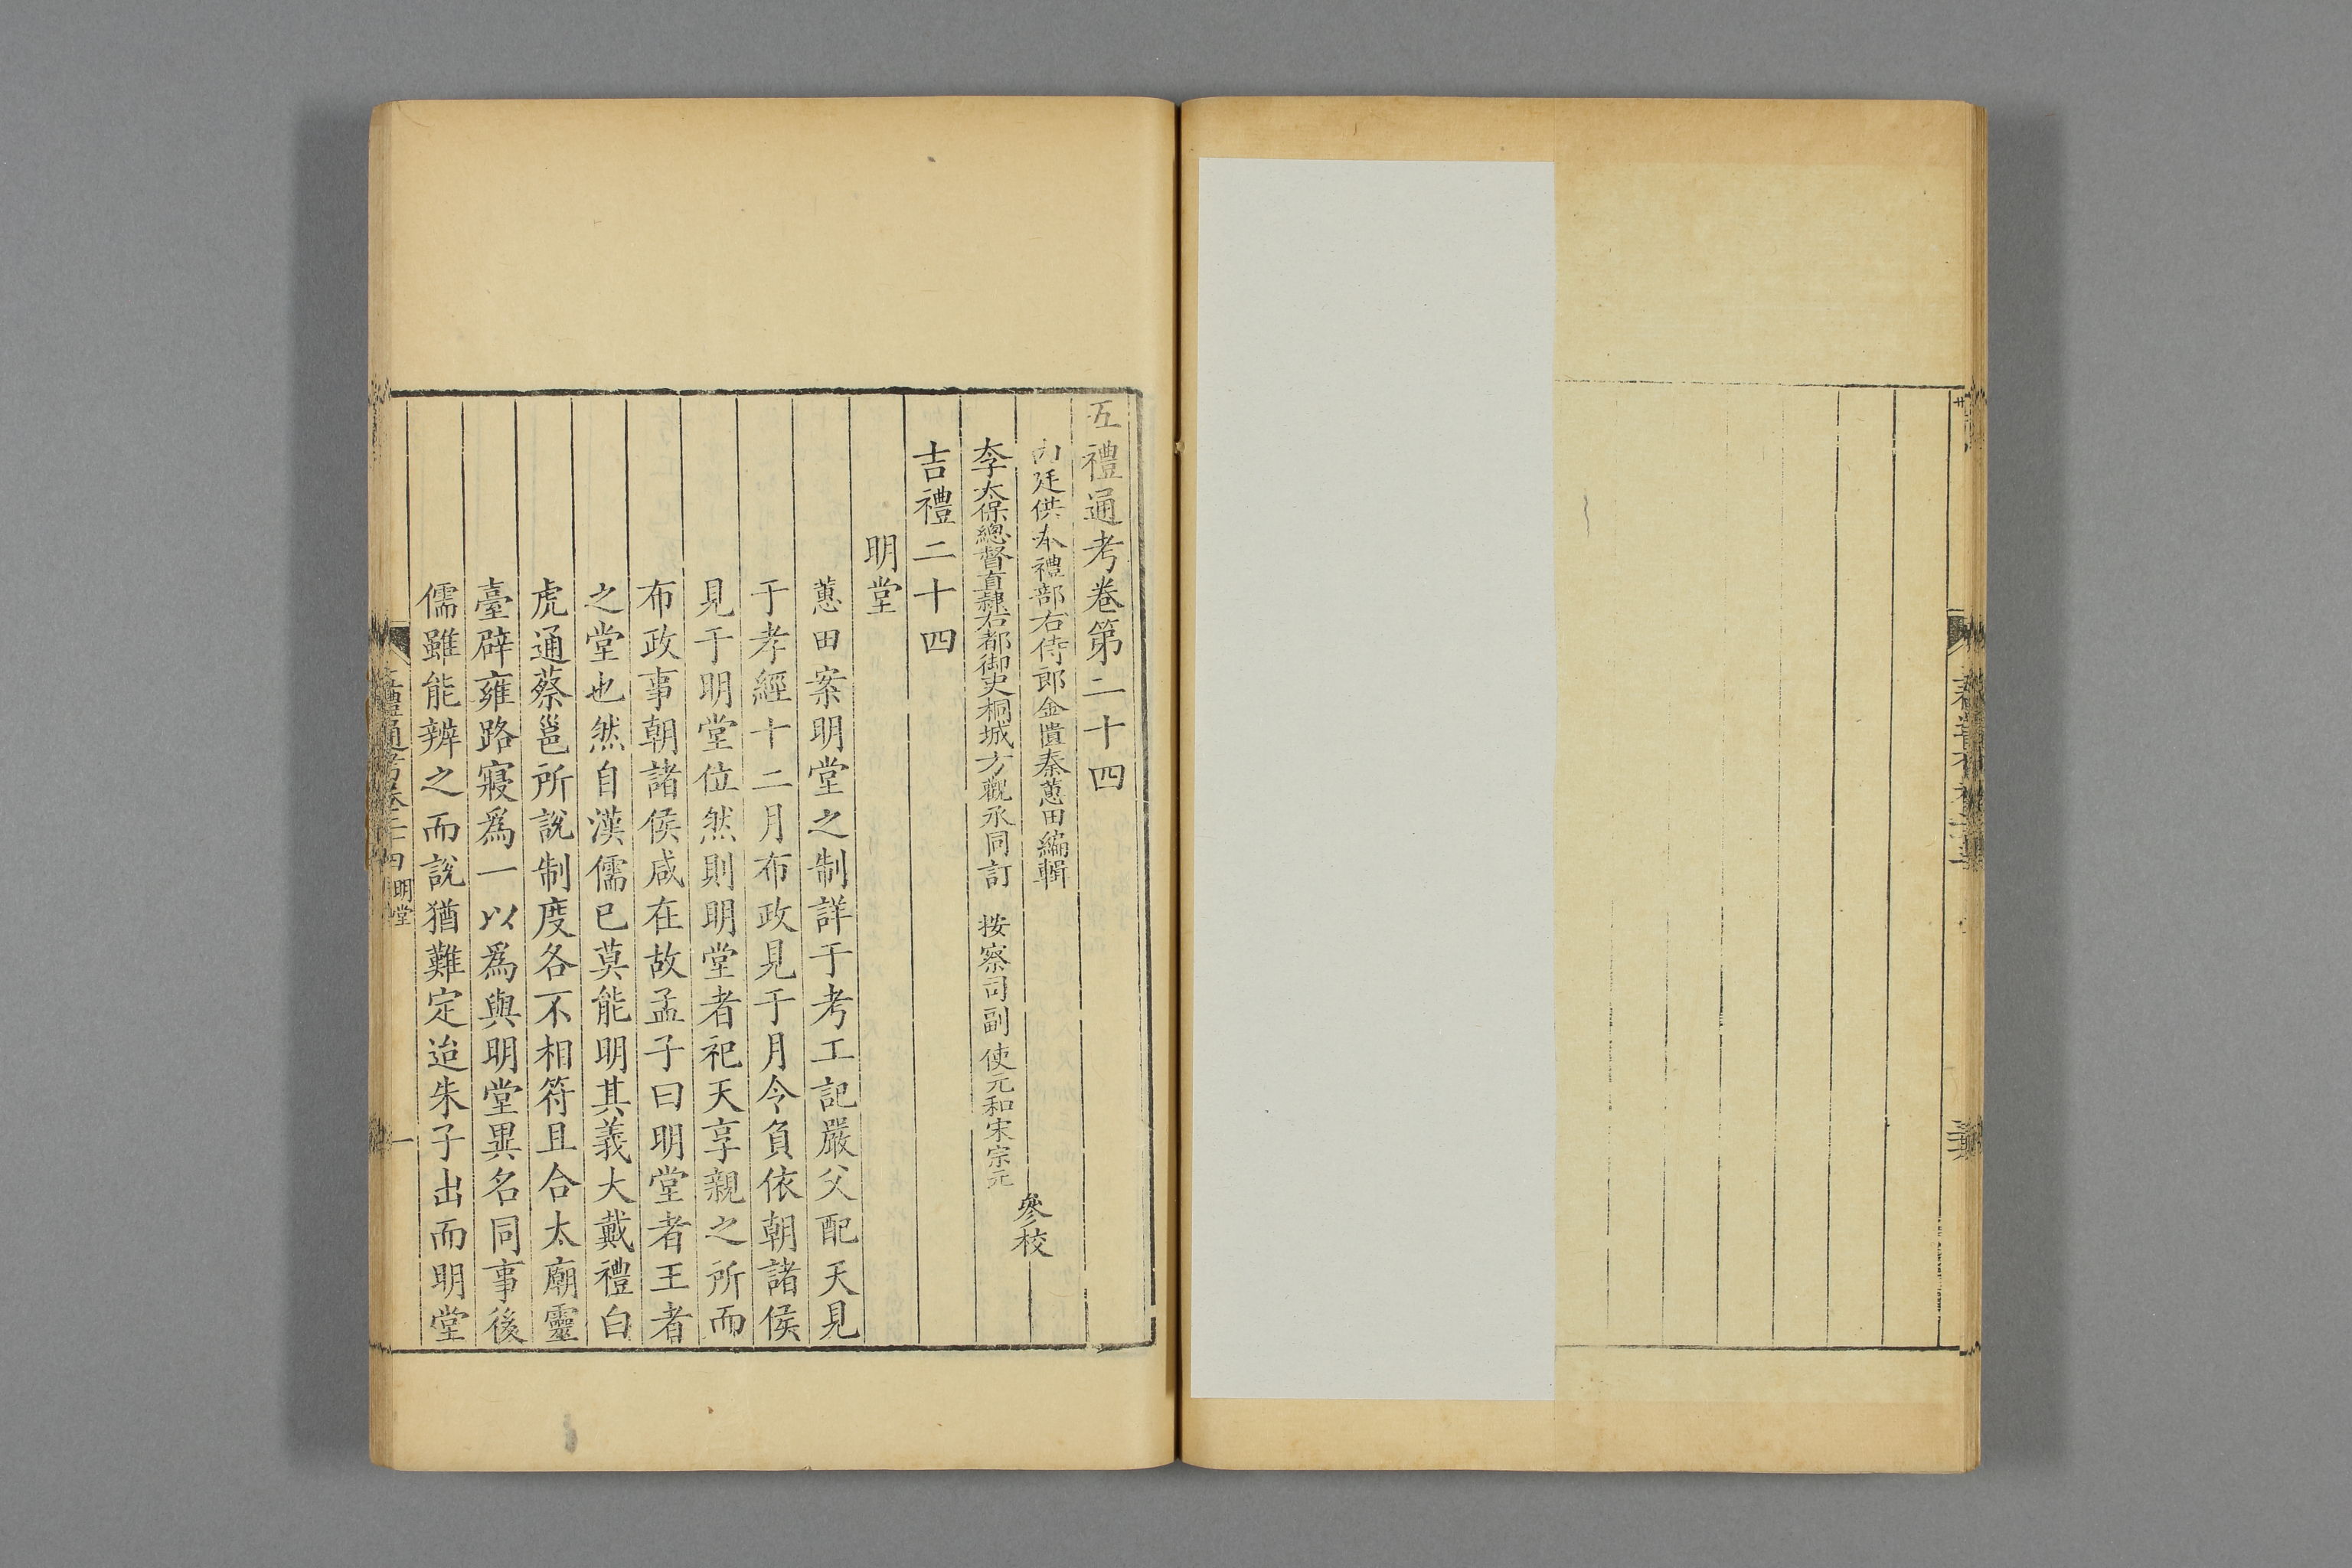 五禮通考卷第二十四
內廷供奉禮部右侍郎金匱秦蕙田編輯
李太保總督直隸右都御史桐城方觀承同訂 按察司副使元和宋宗元
參校
吉禮二十四
明堂
蕙田案明堂之制詳于考工記嚴父配天見
于孝經十二月布政見于月令負依朝諸侯
見于明堂位然則明堂者祀天享親之所而
布政事朝諸侯咸在故孟子曰明堂者王者
之堂也然自漢儒已莫能明其義大戴禮白
虎通蔡邕所說制度各不相符且合太廟靈
臺辟雍路寢爲一以爲與明堂異名同事後
儒雖能辨之而說猶難定迨朱子出而明堂
五禮通考卷二十四 明堂
一